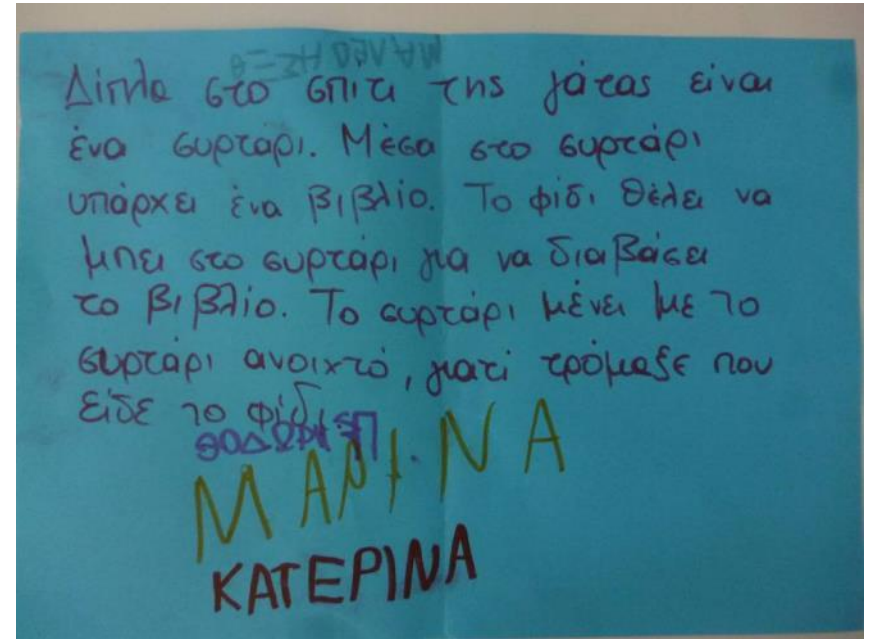 Δίπλα στο σπίτι της γάτας είναι
ένα συρτάρι. Μέσα στο συρτάρι
υπάρχει ένα βιβλίο. Το φίδι θέλει να
μπει στο συρτάρι για να διαβάσει
το βιβλίο. Το συρτάρι μένει με το
συρτάρι ανοιχτό, γιατί τρόμαξε που
είδε το φίδι.
ΜΑΡΙΝΑ
ΚΑΤΕΡΙΝΑ